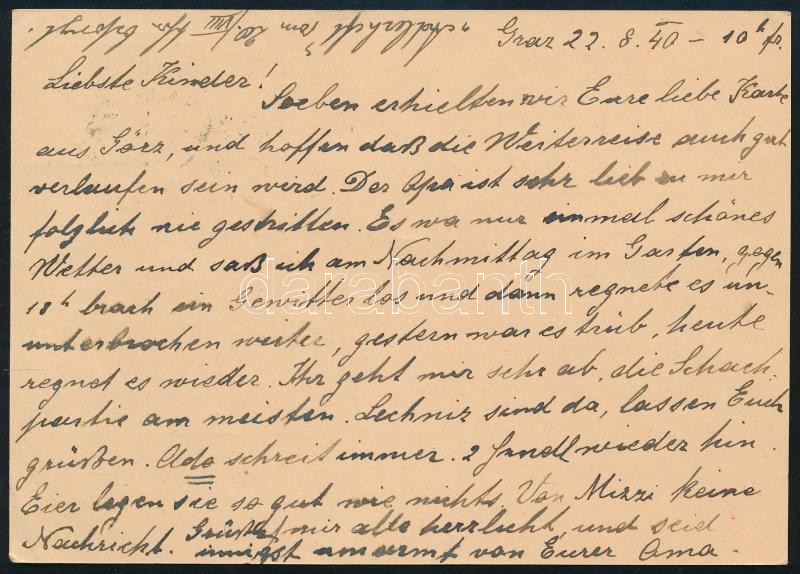 Graz 22. 8. 40 – 10 h fr.
Liebste Kinder!
Soeben erhielten wir Eure liebe Karte
aus Görz, und hoffen daß die Weiterreise auch gut
verlaufen sein wird. Der Opa ist sehr lieb zu mir
folglich nie gestritten. Es wa nur einmal schönes
Wetter und saß ich am Nachmittag im Garten, gegen
18 h brach ein Gewitter los und dann regnete es un-
unterbrochen weiter, gestern war es trüb, heute
regnet es wieder. Ihr geht mir sehr ab, die Schach-
partie am meisten. Lechniz sind da, lassen Euch
grüßen. Ado schreit immer. 2 wieder hin.
Eier legen sie so gut wie nichts. Von Mizzi keine
Nachricht. Grüßt mir alle herzlichst, und seid
innigst umarmt von Eurer Oma.
darabanth